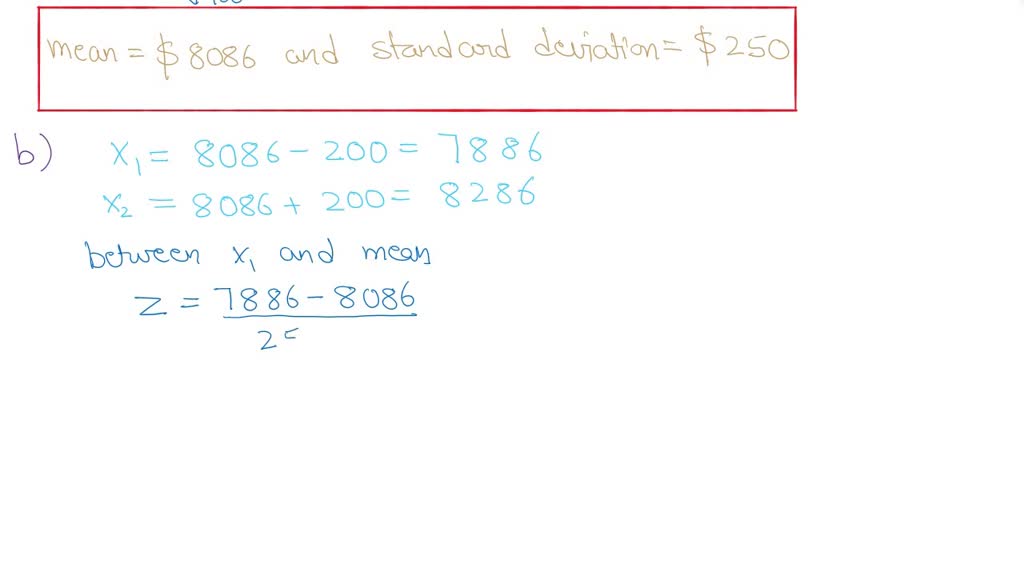 mean = $ 8086 and standard deviation = $ 250
b) x₁ = 8086 - 200 = 7886
x₂ = 8086 + 200 = 8286
between x₁ and mean
z = 7886 - 8086
2